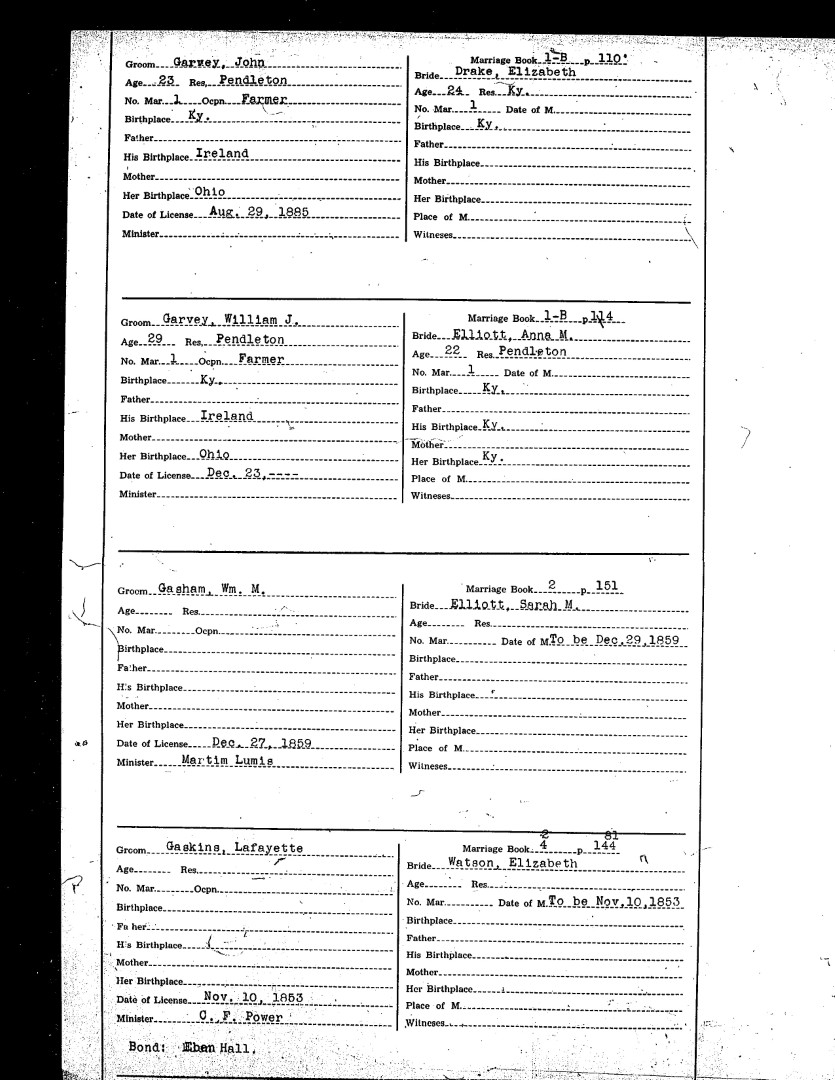 Groom Garvey, John
Age 23 Res. Pendleton
No. Mar. 1 Ocpn. Farmer
Birthplace Ky.
Father
His Birthplace Ireland
Mother
Her Birthplace Ohio
Date of License Aug. 29, 1885
Minister
Marriage Book 1-B p. 110
Bride Drake, Elizabeth
Age 24 Res. Ky.
No. Mar. 1 Date of M.
Birthplace Ky.
Father
His Birthplace
Mother
Her Birthplace
Place of M.
Witneses
Groom Garvey, William J.
Age 29 Res. Pendleton
No. Mar. 1 Ocpn. Farmer
Birthplace Ky.
Father
His Birthplace Ireland
Mother
Her Birthplace Ohio
Date of License Dec. 23,----
Minister
Marriage Book 1-B p. 114
Bride Elliott, Anna M.
Age 22 Res. Pendleton
No. Mar. 1 Date of M.
Birthplace Ky.
Father
His Birthplace Ky.
Mother
Her Birthplace Ky.
Place of M.
Witneses
Groom Gasham, Wm. M.
Age Res.
No. Mar. Ocpn.
Birthplace
Father
His Birthplace
Mother
Her Birthplace
Date of License Dec. 27, 1859
Minister Martim Lumis
Marriage Book 2 p. 151
Bride Elliott, Sarah M.
Age Res.
No. Mar. Date of M. To be Dec.29,1859
Birthplace
Father
His Birthplace
Mother
Her Birthplace
Place of M.
Witneses
Groom Gaskins, Lafayette
Age Res.
No. Mar. Ocpn.
Birthplace
Father
His Birthplace
Mother
Her Birthplace
Date of License Nov. 10, 1853
Minister C. F. Power
Bond: Eben Hall.
2 81
Marriage Book 4 p. 144
Bride Watson, Elizabeth
Age Res.
No. Mar. Date of M. To be Nov.10,1853
Birthplace
Father
His Birthplace
Mother
Her Birthplace
Place of M.
Witneses